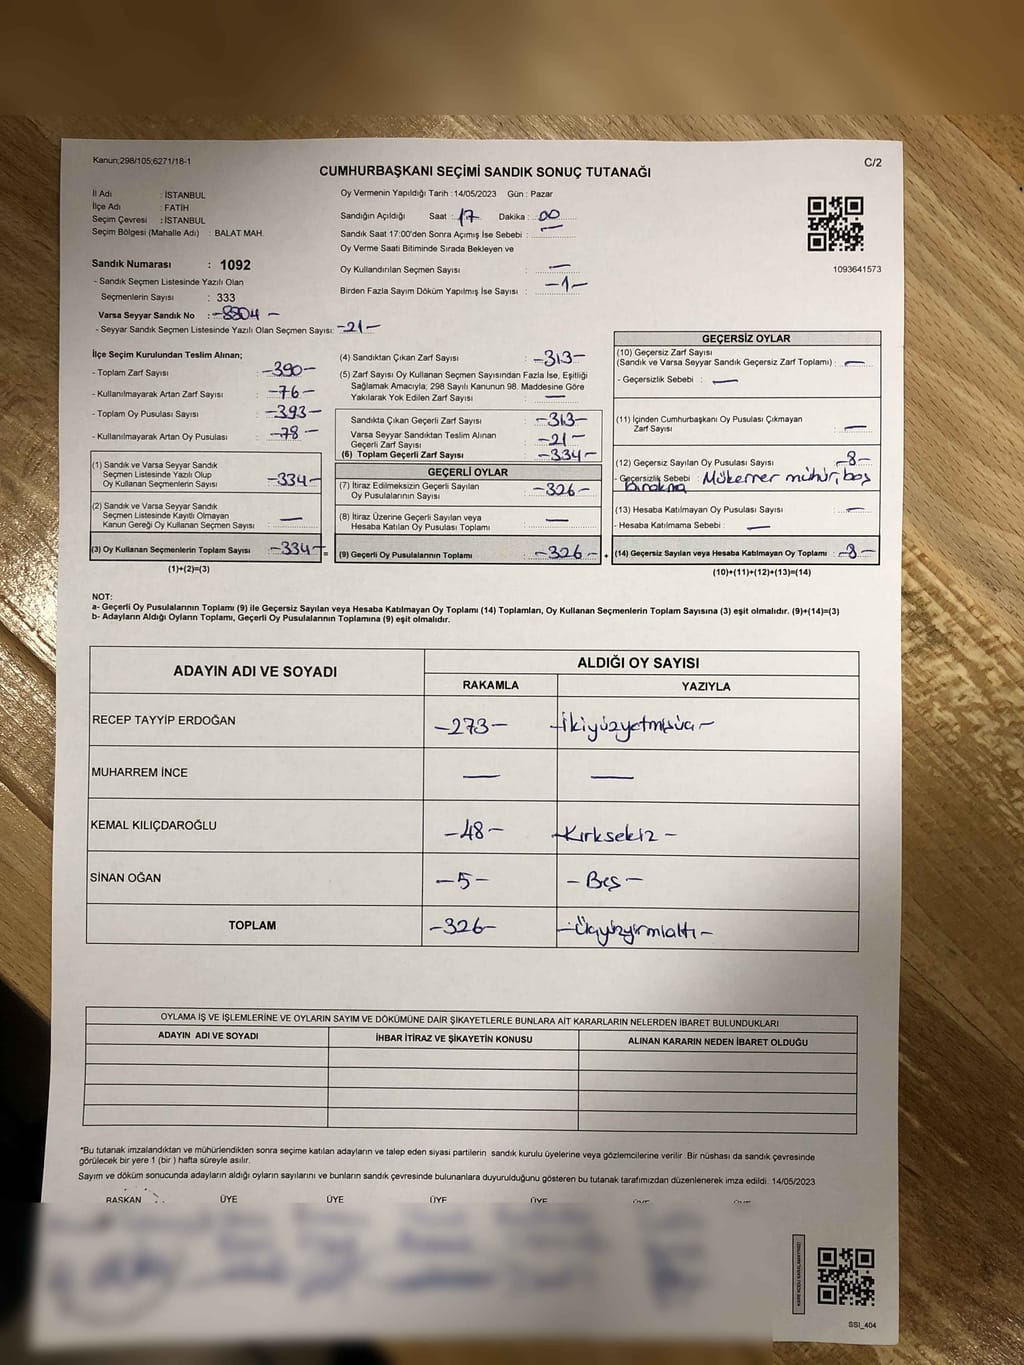 Kanun;298/105;6271/18-1
C/2
CUMHURBAŞKANI SEÇİMİ SANDIK SONUÇ TUTANAĞI
İl Adı : İSTANBUL
İlçe Adı : FATİH
Seçim Çevresi : İSTANBUL
Seçim Bölgesi (Mahalle Adı) : BALAT MAH.
Sandık Numarası : 1092
- Sandık Seçmen Listesinde Yazılı Olan
Seçmenlerin Sayısı : 333
Varsa Seyyar Sandık No :
- Seyyar Sandık Seçmen Listesinde Yazılı Olan Seçmen Sayısı: -21-
Oy Vermenin Yapıldığı Tarih : 14/05/2023 Gün : Pazar
Sandığın Açıldığı Saat : 17 Dakika : 00
Sandık Saat 17:00'den Sonra Açımış İse Sebebi : —
Oy Verme Saati Bitiminde Sırada Bekleyen ve
Oy Kullandırılan Seçmen Sayısı : —
Birden Fazla Sayım Döküm Yapılmış İse Sayısı : -1-
1093641573
İlçe Seçim Kurulundan Teslim Alınan;
- Toplam Zarf Sayısı : -390-
- Kullanılmayarak Artan Zarf Sayısı : -76-
- Toplam Oy Pusulası Sayısı : -393-
- Kullanılmayarak Artan Oy Pusulası : -78-
(1) Sandık ve Varsa Seyyar Sandık
Seçmen Listesinde Yazılı Olup
Oy Kullanan Seçmenlerin Sayısı : -334-
(2) Sandık ve Varsa Seyyar Sandık
Seçmen Listesinde Kayıtlı Olmayan
Kanun Gereği Oy Kullanan Seçmen Sayısı : —
(3) Oy Kullanan Seçmenlerin Toplam Sayısı : -334-
(1)+(2)=(3)
(4) Sandıktan Çıkan Zarf Sayısı : -313-
(5) Zarf Sayısı Oy Kullanan Seçmen Sayısından Fazla İse, Eşitliği
Sağlamak Amacıyla; 298 Sayılı Kanunun 98. Maddesine Göre
Yakılarak Yok Edilen Zarf Sayısı : —
Sandıkta Çıkan Geçerli Zarf Sayısı : -313-
Varsa Seyyar Sandıktan Teslim Alınan
Geçerli Zarf Sayısı : -21-
(6) Toplam Geçerli Zarf Sayısı : -334-
GEÇERLİ OYLAR
(7) İtiraz Edilmeksizin Geçerli Sayılan
Oy Pusulalarının Sayısı : -326-
(8) İtiraz Üzerine Geçerli Sayılan veya
Hesaba Katılan Oy Pusulası Toplamı : —
= (9) Geçerli Oy Pusulalarının Toplamı : -326- +
GEÇERSİZ OYLAR
(10) Geçersiz Zarf Sayısı
(Sandık ve Varsa Seyyar Sandık Geçersiz Zarf Toplamı) : —
- Geçersizlik Sebebi : —
(11) İçinden Cumhurbaşkanı Oy Pusulası Çıkmayan
Zarf Sayısı : —
(12) Geçersiz Sayılan Oy Pusulası Sayısı : -8-
- Geçersizlik Sebebi : Mükerrer mühür, boş
bırakma
(13) Hesaba Katılmayan Oy Pusulası Sayısı : —
- Hesaba Katılmama Sebebi : —
(14) Geçersiz Sayılan veya Hesaba Katılmayan Oy Toplamı : -8-
(10)+(11)+(12)+(13)=(14)
NOT:
a- Geçerli Oy Pusulalarının Toplamı (9) ile Geçersiz Sayılan veya Hesaba Katılmayan Oy Toplamı (14) Toplamları, Oy Kullanan Seçmenlerin Toplam Sayısına (3) eşit olmalıdır. (9)+(14)=(3)
b- Adayların Aldığı Oyların Toplamı, Geçerli Oy Pusulalarının Toplamına (9) eşit olmalıdır.
ADAYIN ADI VE SOYADI ALDIĞI OY SAYISI
RAKAMLA YAZIYLA
RECEP TAYYİP ERDOĞAN -273- -İkiyüzyetmişüç-
MUHARREM İNCE — —
KEMAL KILIÇDAROĞLU -48- -Kırksekiz-
SİNAN OĞAN -5- -Beş-
TOPLAM -326- -Üçyüzyirmialtı-
OYLAMA İŞ VE İŞLEMLERİNE VE OYLARIN SAYIM VE DÖKÜMÜNE DAİR ŞİKAYETLERLE BUNLARA AİT KARARLARIN NELERDEN İBARET BULUNDUKLARI
ADAYIN ADI VE SOYADI İHBAR İTİRAZ VE ŞİKAYETİN KONUSU ALINAN KARARIN NEDEN İBARET OLDUĞU
*Bu tutanak imzalandıktan ve mühürlendikten sonra seçime katılan adayların ve talep eden siyasi partilerin sandık kurulu üyelerine veya gözlemcilerine verilir. Bir nüshası da sandık çevresinde
görülecek bir yere 1 (bir ) hafta süreyle asılır.
Sayım ve döküm sonucunda adayların aldığı oyların sayılarını ve bunların sandık çevresinde bulunanlara duyurulduğunu gösteren bu tutanak tarafımızdan düzenlenerek imza edildi. 14/05/2023
BAŞKAN ÜYE ÜYE ÜYE ÜYE ÜYE ÜYE
SSI_404